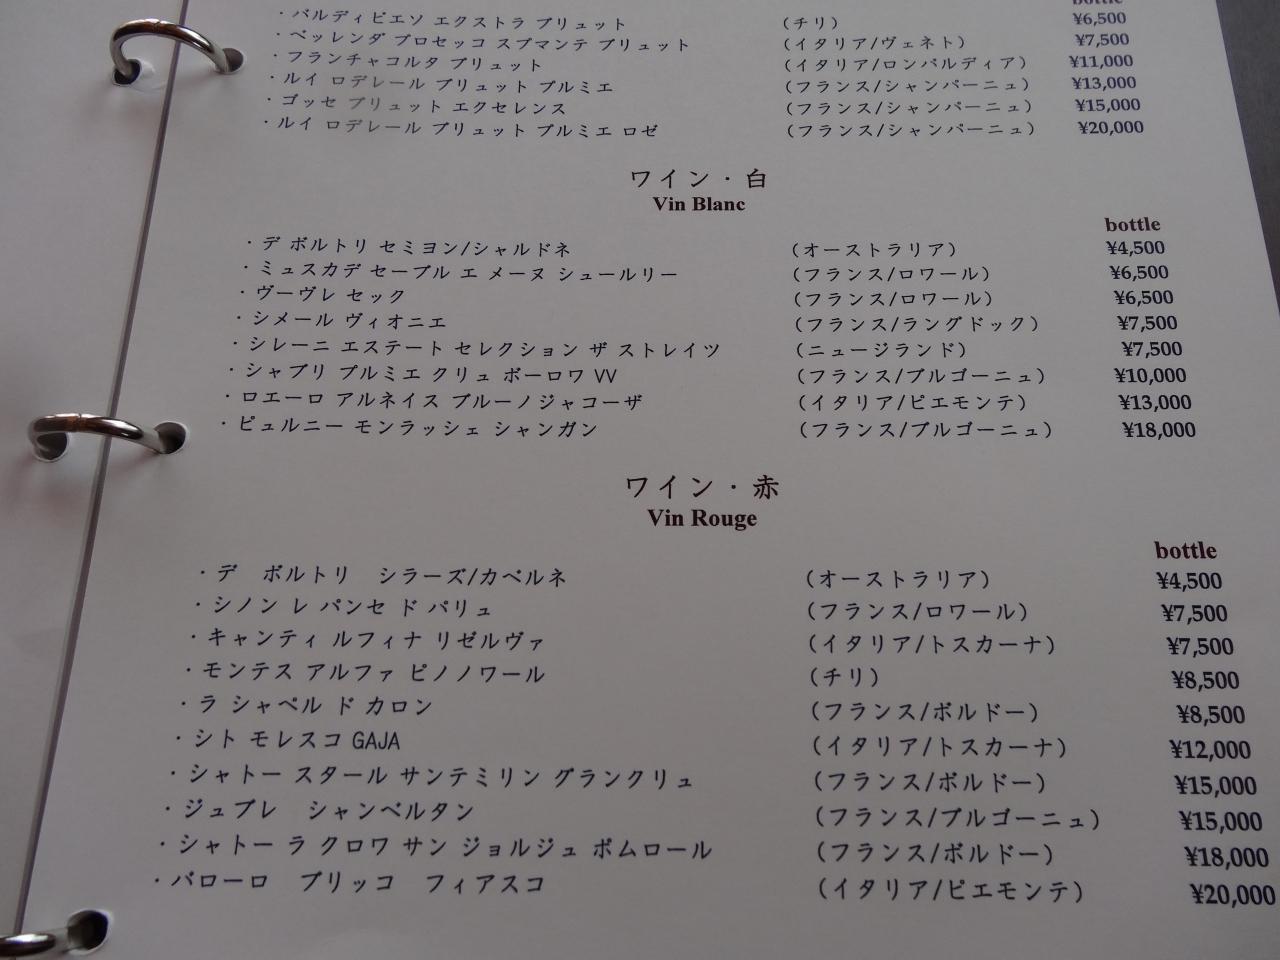 bottle
・バルディビエソ エクストラ ブリュット (チリ) ¥6,500
・ベッレンダ プロセッコ スプマンテ ブリュット (イタリア/ヴェネト) ¥7,500
・フランチャコルタ ブリュット (イタリア/ロンバルディア) ¥11,000
・ルイ ロデレール ブリュット プルミエ (フランス/シャンパーニュ) ¥13,000
・ゴッセ ブリュット エクセレンス (フランス/シャンパーニュ) ¥15,000
・ルイ ロデレール ブリュット プルミエ ロゼ (フランス/シャンパーニュ) ¥20,000
ワイン・白
Vin Blanc
bottle
・デ ボルトリ セミヨン/シャルドネ (オーストラリア) ¥4,500
・ミュスカデ セーブル エ メーヌ シュールリー (フランス/ロワール) ¥6,500
・ヴーヴレ セック (フランス/ロワール) ¥6,500
・シメール ヴィオニエ (フランス/ラングドック) ¥7,500
・シレーニ エステート セレクション ザ ストレイツ (ニュージランド) ¥7,500
・シャブリ プルミエ クリュ ボーロワ VV (フランス/ブルゴーニュ) ¥10,000
・ロエーロ アルネイス ブルーノジャコーザ (イタリア/ピエモンテ) ¥13,000
・ピュルニー モンラッシェ シャンガン (フランス/ブルゴーニュ) ¥18,000
ワイン・赤
Vin Rouge
bottle
・デ　ボルトリ　シラーズ/カベルネ (オーストラリア) ¥4,500
・シノン レ パンセ ド パリュ (フランス/ロワール) ¥7,500
・キャンティ ルフィナ リゼルヴァ (イタリア/トスカーナ) ¥7,500
・モンテス アルファ ピノノワール (チリ) ¥8,500
・ラ シャペル ド カロン (フランス/ボルドー) ¥8,500
・シト モレスコ GAJA (イタリア/トスカーナ) ¥12,000
・シャトー スタール サンテミリン グランクリュ (フランス/ボルドー) ¥15,000
・ジュブレ　シャンベルタン (フランス/ブルゴーニュ) ¥15,000
・シャトー ラ クロワ サン ジョルジュ ポムロール (フランス/ボルドー) ¥18,000
・バローロ　ブリッコ　フィアスコ (イタリア/ピエモンテ) ¥20,000